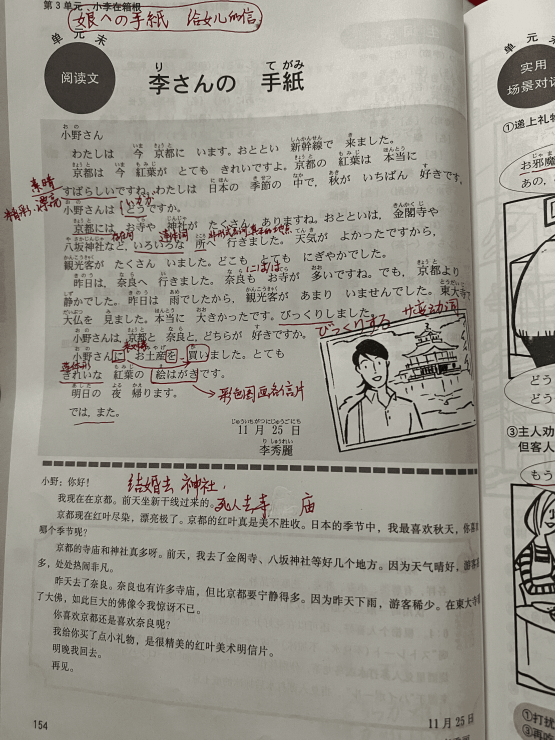 第3单元 小李在箱根
娘への手紙 给女儿的信
单元末
阅读文
李さんの 手紙
小野さん
わたしは 今 京都に います。おととい 新幹線で 来ました。
京都は 今 紅葉が とても きれいですよ。京都の 紅葉は 本当に
すばらしいですね。わたしは 日本の 季節の 中で，秋が いちばん 好きです。
小野さんは どうですか。
京都には お寺や 神社が たくさん ありますね。おとといは，金閣寺や
八坂神社など，いろいろな 所へ 行きました。天気が よかったですから，
観光客が たくさん いました。どこも とても にぎやかでした。
昨日は，奈良へ 行きました。奈良も お寺が 多いですね。でも，京都より
静かでした。昨日は 雨でしたから，観光客が あまり いませんでした。東大寺で
大仏を 見ました。本当に 大きかったです。びっくりしました。
小野さんは 京都と 奈良と，どちらが 好きですか。
小野さんに お土産を 買いました。とても
きれいな 紅葉の 絵はがきです。
明日の 夜 帰ります。
では，また。
びっくりする サ变动词
彩色图画名信片
11月25日
李秀麗
结婚去 神社，
死人去寺 庙
小野：你好！
我现在在京都。前天坐新干线过来的。
京都现在红叶尽染，漂亮极了。京都的红叶真是美不胜收。日本的季节中，我最喜欢秋天，你喜欢
哪个季节呢？
京都的寺庙和神社真多呀。前天，我去了金阁寺、八坂神社等好几个地方。因为天气晴好，游客
多，处处热闹非凡。
昨天去了奈良。奈良也有许多寺庙，但比京都要宁静得多。因为昨天下雨，游客稀少。在東大寺
了大佛，如此巨大的佛像令我惊讶不已。
你喜欢京都还是喜欢奈良呢？
我给你买了点小礼物，是很精美的红叶美术明信片。
明晚我回去。
再见。
11月25日
154
单元末
实用
场景对话
①递上礼物
お邪魔
あの，
どう
どう
③主人劝
但客人
もう
①打扰